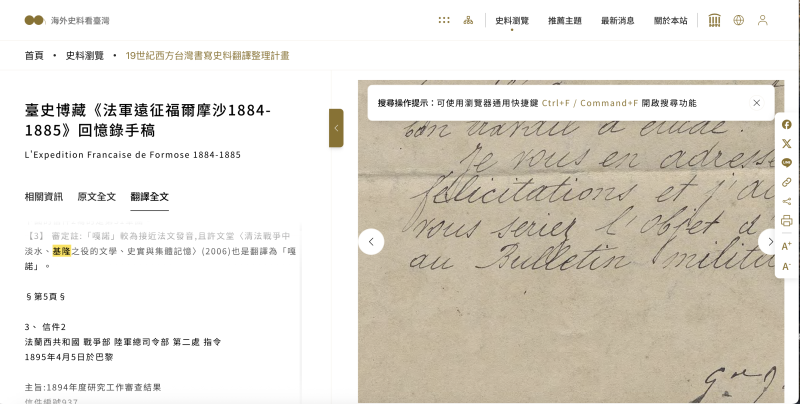 海外史料看臺灣
史料瀏覽
推薦主題
最新消息
關於本站
首頁 • 史料瀏覽 • 19世紀西方台灣書寫史料翻譯整理計畫
臺史博藏《法軍遠征福爾摩沙1884-
1885》回憶錄手稿
L'Expedition Francaise de Formose 1884-1885
相關資訊 原文全文 翻譯全文
【3】 審定註:「嘎諾」較為接近法文發音,且許文堂〈清法戰爭中
淡水、基隆之役的文學、史實與集體記憶〉(2006)也是翻譯為「嘎
諾」。
§第5頁§
3、 信件2
法蘭西共和國 戰爭部 陸軍總司令部 第二處 指令
1895年4月5日於巴黎
主旨:1894年度研究工作審查結果
信件編號937
搜尋操作提示：可使用瀏覽器通用快捷鍵 Ctrl+F / Command+F 開啟搜尋功能
travail d'étude.
Je vous en adresse
félicitations et j'ai
vous seriez l'objet d'
au Bulletin milita
A+
A-